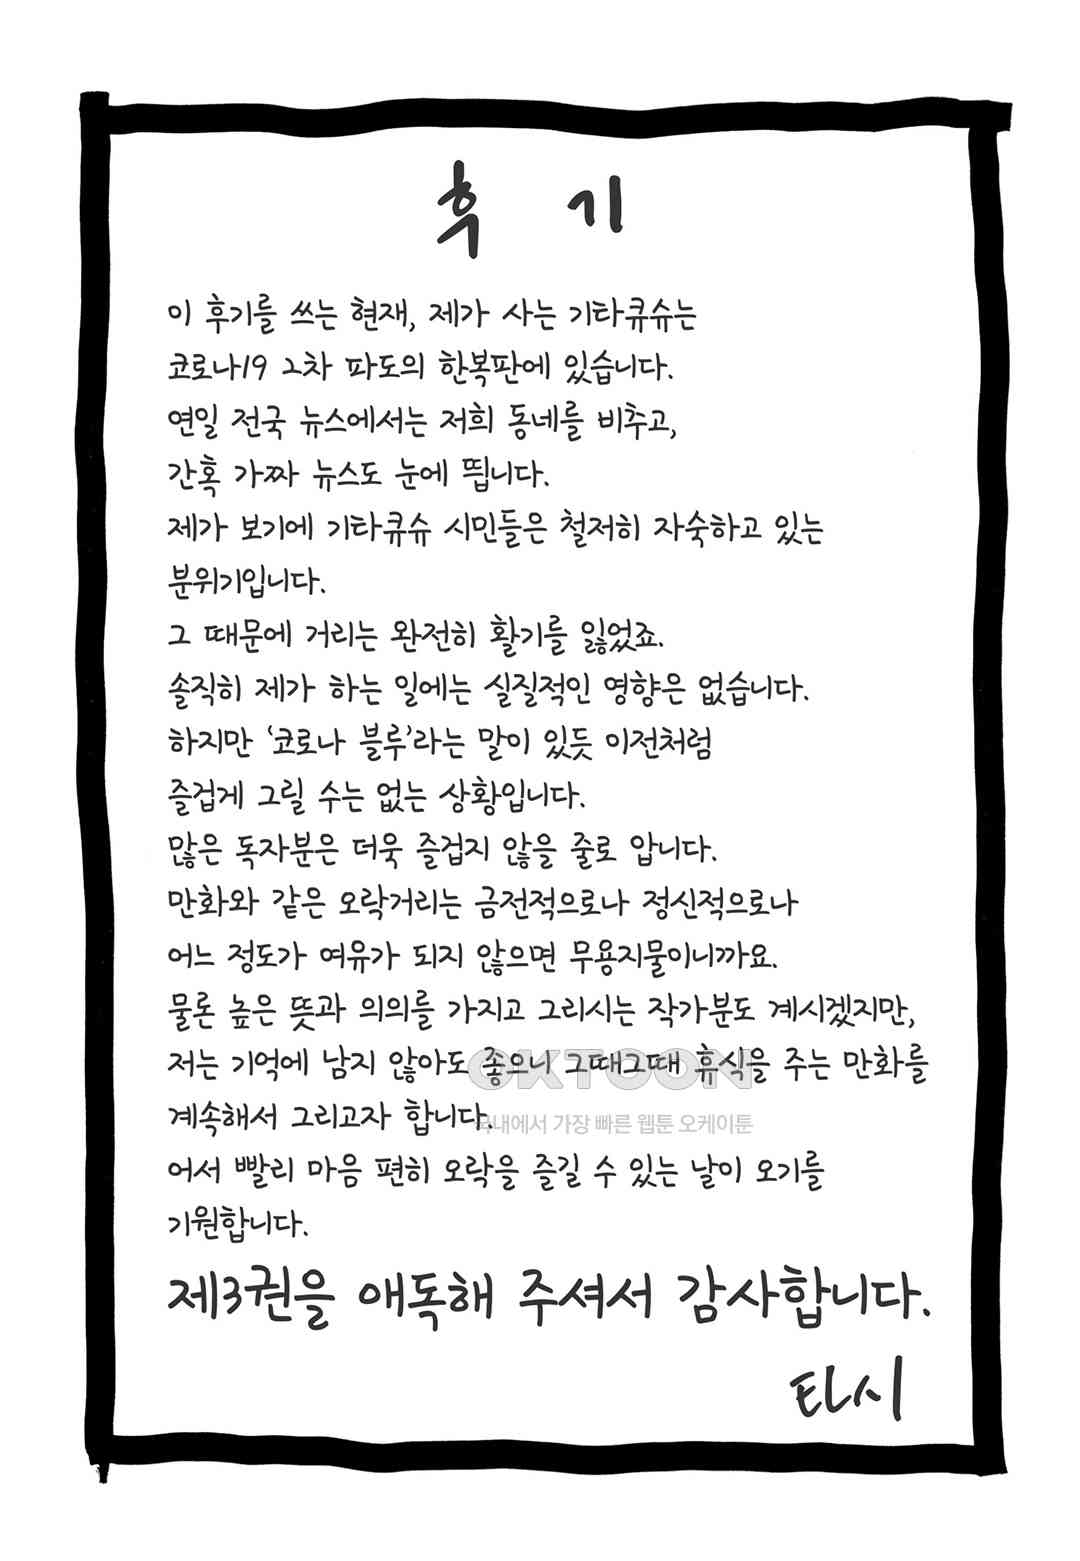 후 기
이 후기를 쓰는 현재, 제가 사는 기타큐슈는
코로나19 2차 파도의 한복판에 있습니다.
연일 전국 뉴스에서는 저희 동네를 비추고,
간혹 가짜 뉴스도 눈에 띕니다.
제가 보기에 기타큐슈 시민들은 철저히 자숙하고 있는
분위기입니다.
그 때문에 거리는 완전히 활기를 잃었죠.
솔직히 제가 하는 일에는 실질적인 영향은 없습니다.
하지만 '코로나 블루'라는 말이 있듯 이전처럼
즐겁게 그릴 수는 없는 상황입니다.
많은 독자분은 더욱 즐겁지 않을 줄로 압니다.
만화와 같은 오락거리는 금전적으로나 정신적으로나
어느 정도가 여유가 되지 않으면 무용지물이니까요.
물론 높은 뜻과 의의를 가지고 그리시는 작가분도 계시겠지만,
저는 기억에 남지 않아도 좋으니 그때그때 휴식을 주는 만화를
OKTOON
계속해서 그리고자 합니다.
국내에서 가장 빠른 웹툰 오케이툰
어서 빨리 마음 편히 오락을 즐길 수 있는 날이 오기를
기원합니다.
제3권을 애독해 주셔서 감사합니다.
타시